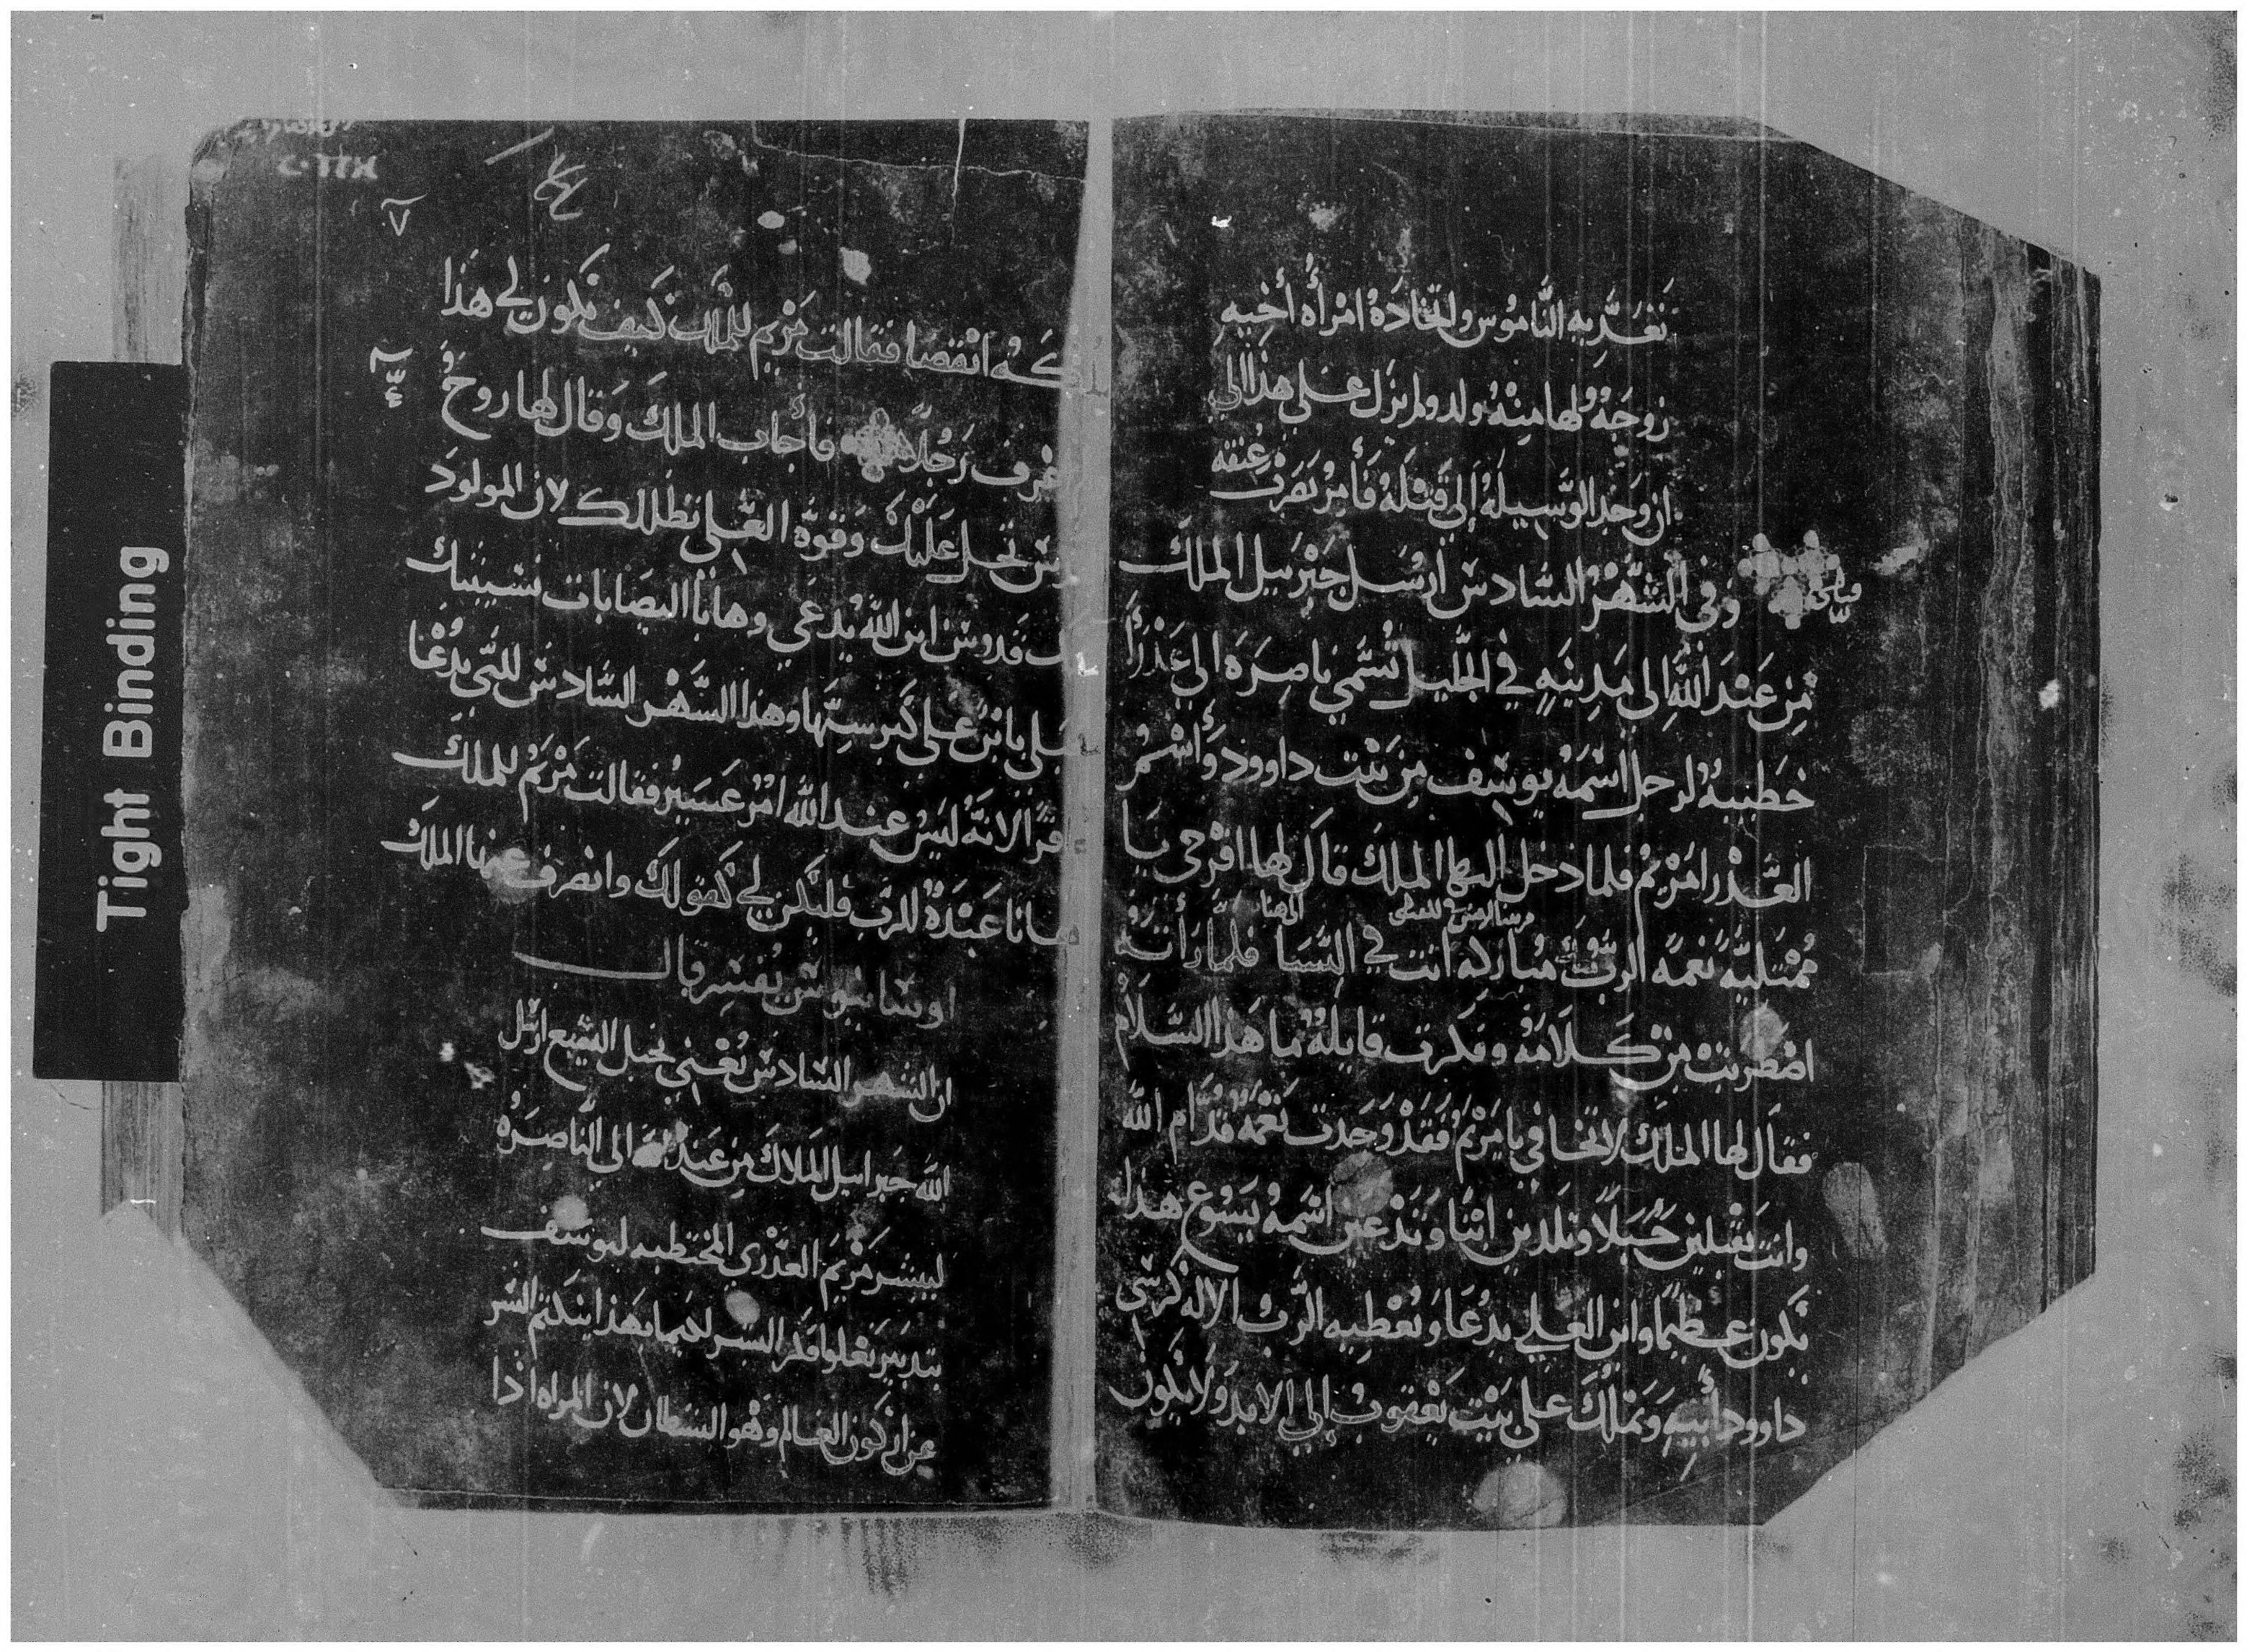 تعديه الناموس واتخاده امراه أخيه
زوجه ولها منه ولد ولم يزل على هذا الى
ان وجد الوسيله إلي قتله فأمر بضرب عنقه
وفي الشهر السادس ارسل جبرييل الملك
من عند الله الى مدينه في الجليل تسمي ناصره الي عذرا
خطيبه لرجل اسمه يوسف من بيت داوود وأسم
العذرا مريم فلما دخل اليها الملك قال لها افرحي يا
ممتليه نعمه الرب معك مباركه انت في النسا فلما رات
اضطربت من كلامه وفكرت قايله ما هذا السلام
فقال لها الملك لا تخافي يا مريم فقد وجدت نعمه قدام الله
وانت تقبلين حبلا وتلدين ابنا وتدعين اسمه يسوع هذا
يكون عظيما وابن العلي يدعا ويعطيه الرب الاله كرسي
داوود أبيه ويملك على بيت يعقوب إلي الابد ولا يكون
انقضا فقالت مريم للملك كيف يكون لي هذا
رجلا فأجاب الملك وقال لها روح
تحل عليك وقوة العلي تظللك لان المولود
قدوس ابن الله يدعي وهاذا اليصابات نسيبتك
بابن على كبر سنها وهذا الشهر السادس للتي يدعا
لانه ليس عند الله امر عسير فقالت مريم للملك
انا عبدة للرب فليكن لي كقولك وانصرف عنها الملك
يفسر قال
ان الشهر السادس يعني بحبل اليشبع ارسل
الله جبراييل الملاك من عند الى الناصره
ليبشر مريم العذرى المختطبه ليوسف
بتدبير
عن اركون العالم وهو الشيطان لان المراه اذا
Tight Binding